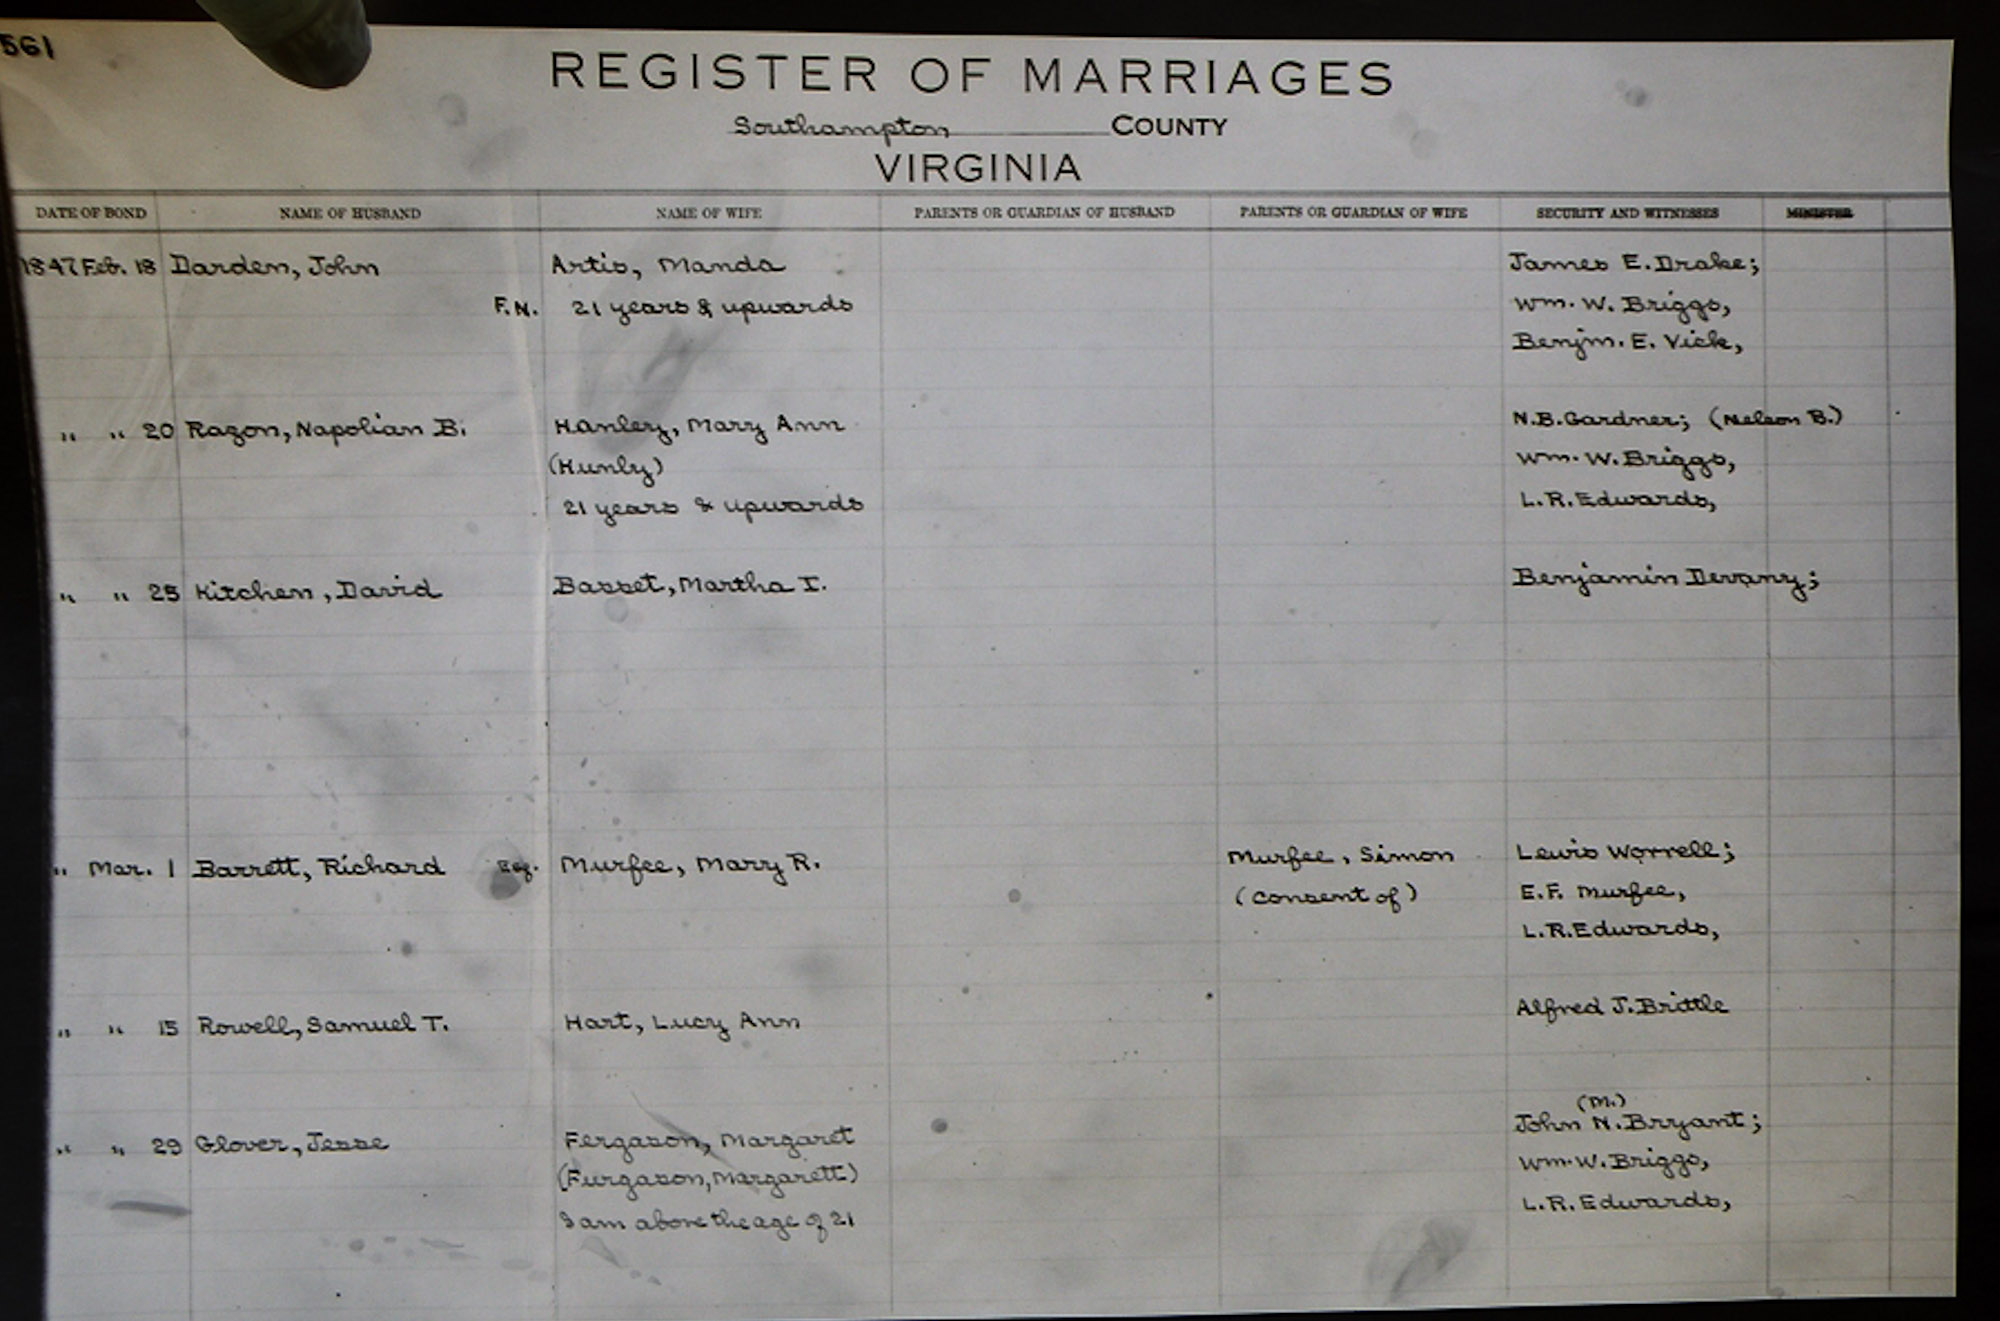 561
REGISTER OF MARRIAGES
Southampton COUNTY
VIRGINIA
DATE OF BOND NAME OF HUSBAND NAME OF WIFE PARENTS OR GUARDIAN OF HUSBAND PARENTS OR GUARDIAN OF WIFE SECURITY AND WITNESSES MINISTER
1847 Feb. 18 Darden, John Artis, Manda James E. Drake;
F.N. 21 years & upwards Wm. W. Briggs,
Benjm. E. Vick,
" " 20 Razon, Napolian B. Hanley, Mary Ann N.B. Gardner; (Nelson B.)
(Hunly) Wm. W. Briggs,
21 years & upwards L.R. Edwards,
" " 25 Kitchen, David Basset, Martha I. Benjamin Devany;
" Mar. 1 Barrett, Richard Esq. Murfee, Mary R. Murfee, Simon Lewis Worrell;
(consent of) E.F. Murfee,
L.R. Edwards,
" " 15 Rowell, Samuel T. Hart, Lucy Ann Alfred J. Brittle
(M.)
" " 29 Glover, Jesse Fergason, Margaret John N. Bryant;
(Furgason, Margarett) Wm. W. Briggs,
I am above the age of 21 L.R. Edwards,